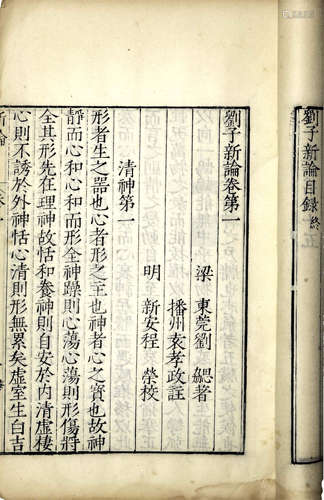 劉子新論目錄終
五
劉子新論卷第一
梁東莞劉勰著
播州袁孝政註
明新安程榮校
清神第一
形者生之器也心者形之主也神者心之寶也故神
靜而心和心和而形全神躁則心蕩心蕩則形傷將
全其形先在理神故恬和養神則自安於內清虛棲
心則不誘於外神恬心清則形無累矣虛室生白吉
新論